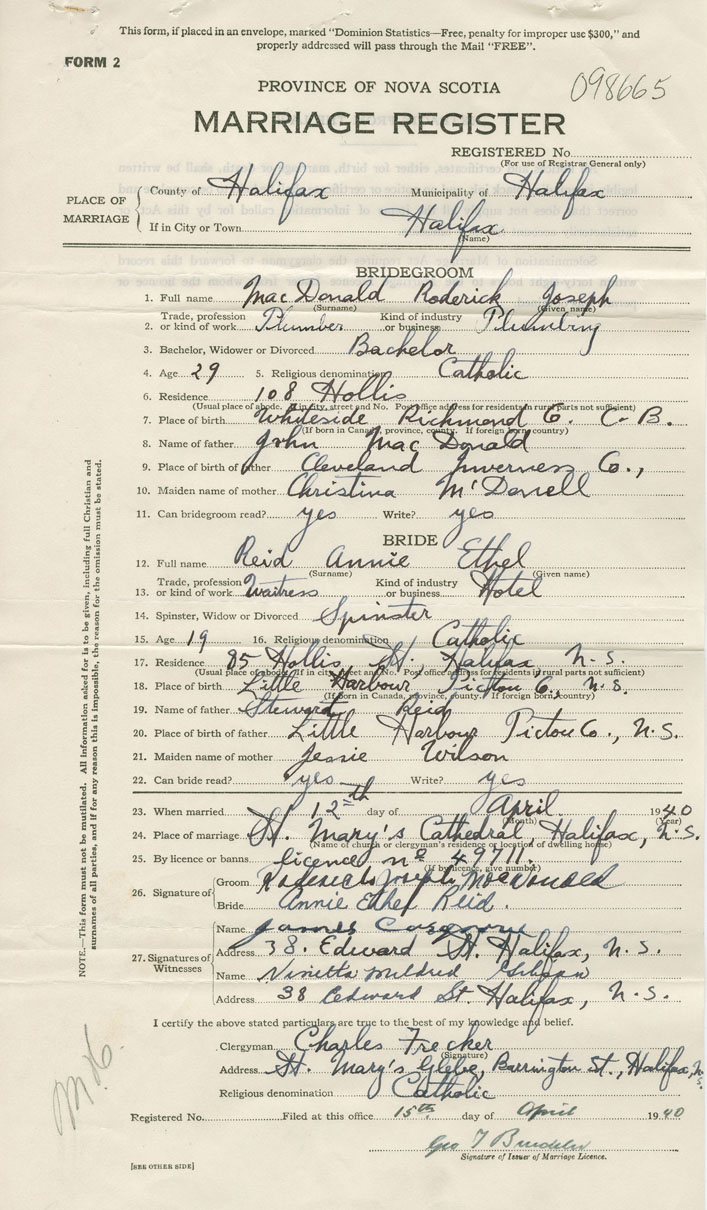 This form, if placed in an envelope, marked "Dominion Statistics—Free, penalty for improper use $300," and
properly addressed will pass through the Mail "FREE".
FORM 2
098665
PROVINCE OF NOVA SCOTIA
MARRIAGE REGISTER
REGISTERED No.
(For use of Registrar General only)
PLACE OF MARRIAGE
County of Halifax Municipality of Halifax
If in City or Town Halifax
(Name)
BRIDEGROOM
1. Full name MacDonald Roderick Joseph
(Surname) (Given name)
2. Trade, profession or kind of work Plumber Kind of industry or business Plumbing
3. Bachelor, Widower or Divorced Bachelor
4. Age 29 5. Religious denomination Catholic
6. Residence 108 Hollis
(Usual place of abode. If in city, street and No. Post office address for residents in rural parts not sufficient)
7. Place of birth Whiteside Richmond Co. C-B.
(If born in Canada, province, county. If foreign born, country)
8. Name of father John MacDonald
9. Place of birth of father Cleveland Inverness Co.,
10. Maiden name of mother Christina
11. Can bridegroom read? yes Write? yes
BRIDE
12. Full name Reid Annie Ethel
(Surname) (Given name)
13. Trade, profession or kind of work Waitress Kind of industry or business Hotel
14. Spinster, Widow or Divorced Spinster
15. Age 19 16. Religious denomination Catholic
17. Residence 85 Hollis St., Halifax N.S.
(Usual place of abode. If in city, street and No. Post office address for residents in rural parts not sufficient)
18. Place of birth Little Harbour Pictou Co., N.S.
(If born in Canada, province, county. If foreign born, country)
19. Name of father Steward Reid
20. Place of birth of father Little Harbour Pictou Co., N.S.
21. Maiden name of mother Jessie Wilson
22. Can bride read? yes Write? yes
23. When married 12th day of April 1940
(Month) (Year)
24. Place of marriage St. Mary's Cathedral Halifax, N.S.
(Name of church or clergyman's residence or location of dwelling house)
25. By licence or banns licence no 4971.
(If by licence, give number)
26. Signature of
Groom Roderick Joseph MacDonald
Bride Annie Ethel Reid.
27. Signatures of Witnesses
Name James
Address 38. Edward St. Halifax, N.S.
Name Mildred
Address 38 Edward St. Halifax, N.S.
I certify the above stated particulars are true to the best of my knowledge and belief.
Clergyman Charles Frecker
(Signature)
Address St. Mary's Glebe, Barrington St., Halifax, N.S.
Religious denomination Catholic
Registered No. Filed at this office 15th day of April 1940
Geo
Signature of Issuer of Marriage Licence.
[SEE OTHER SIDE]
NOTE.—This form must not be mutilated. All information asked for is to be given, including full Christian and
surnames of all parties, and if for any reason this is impossible, the reason for the omission must be stated.